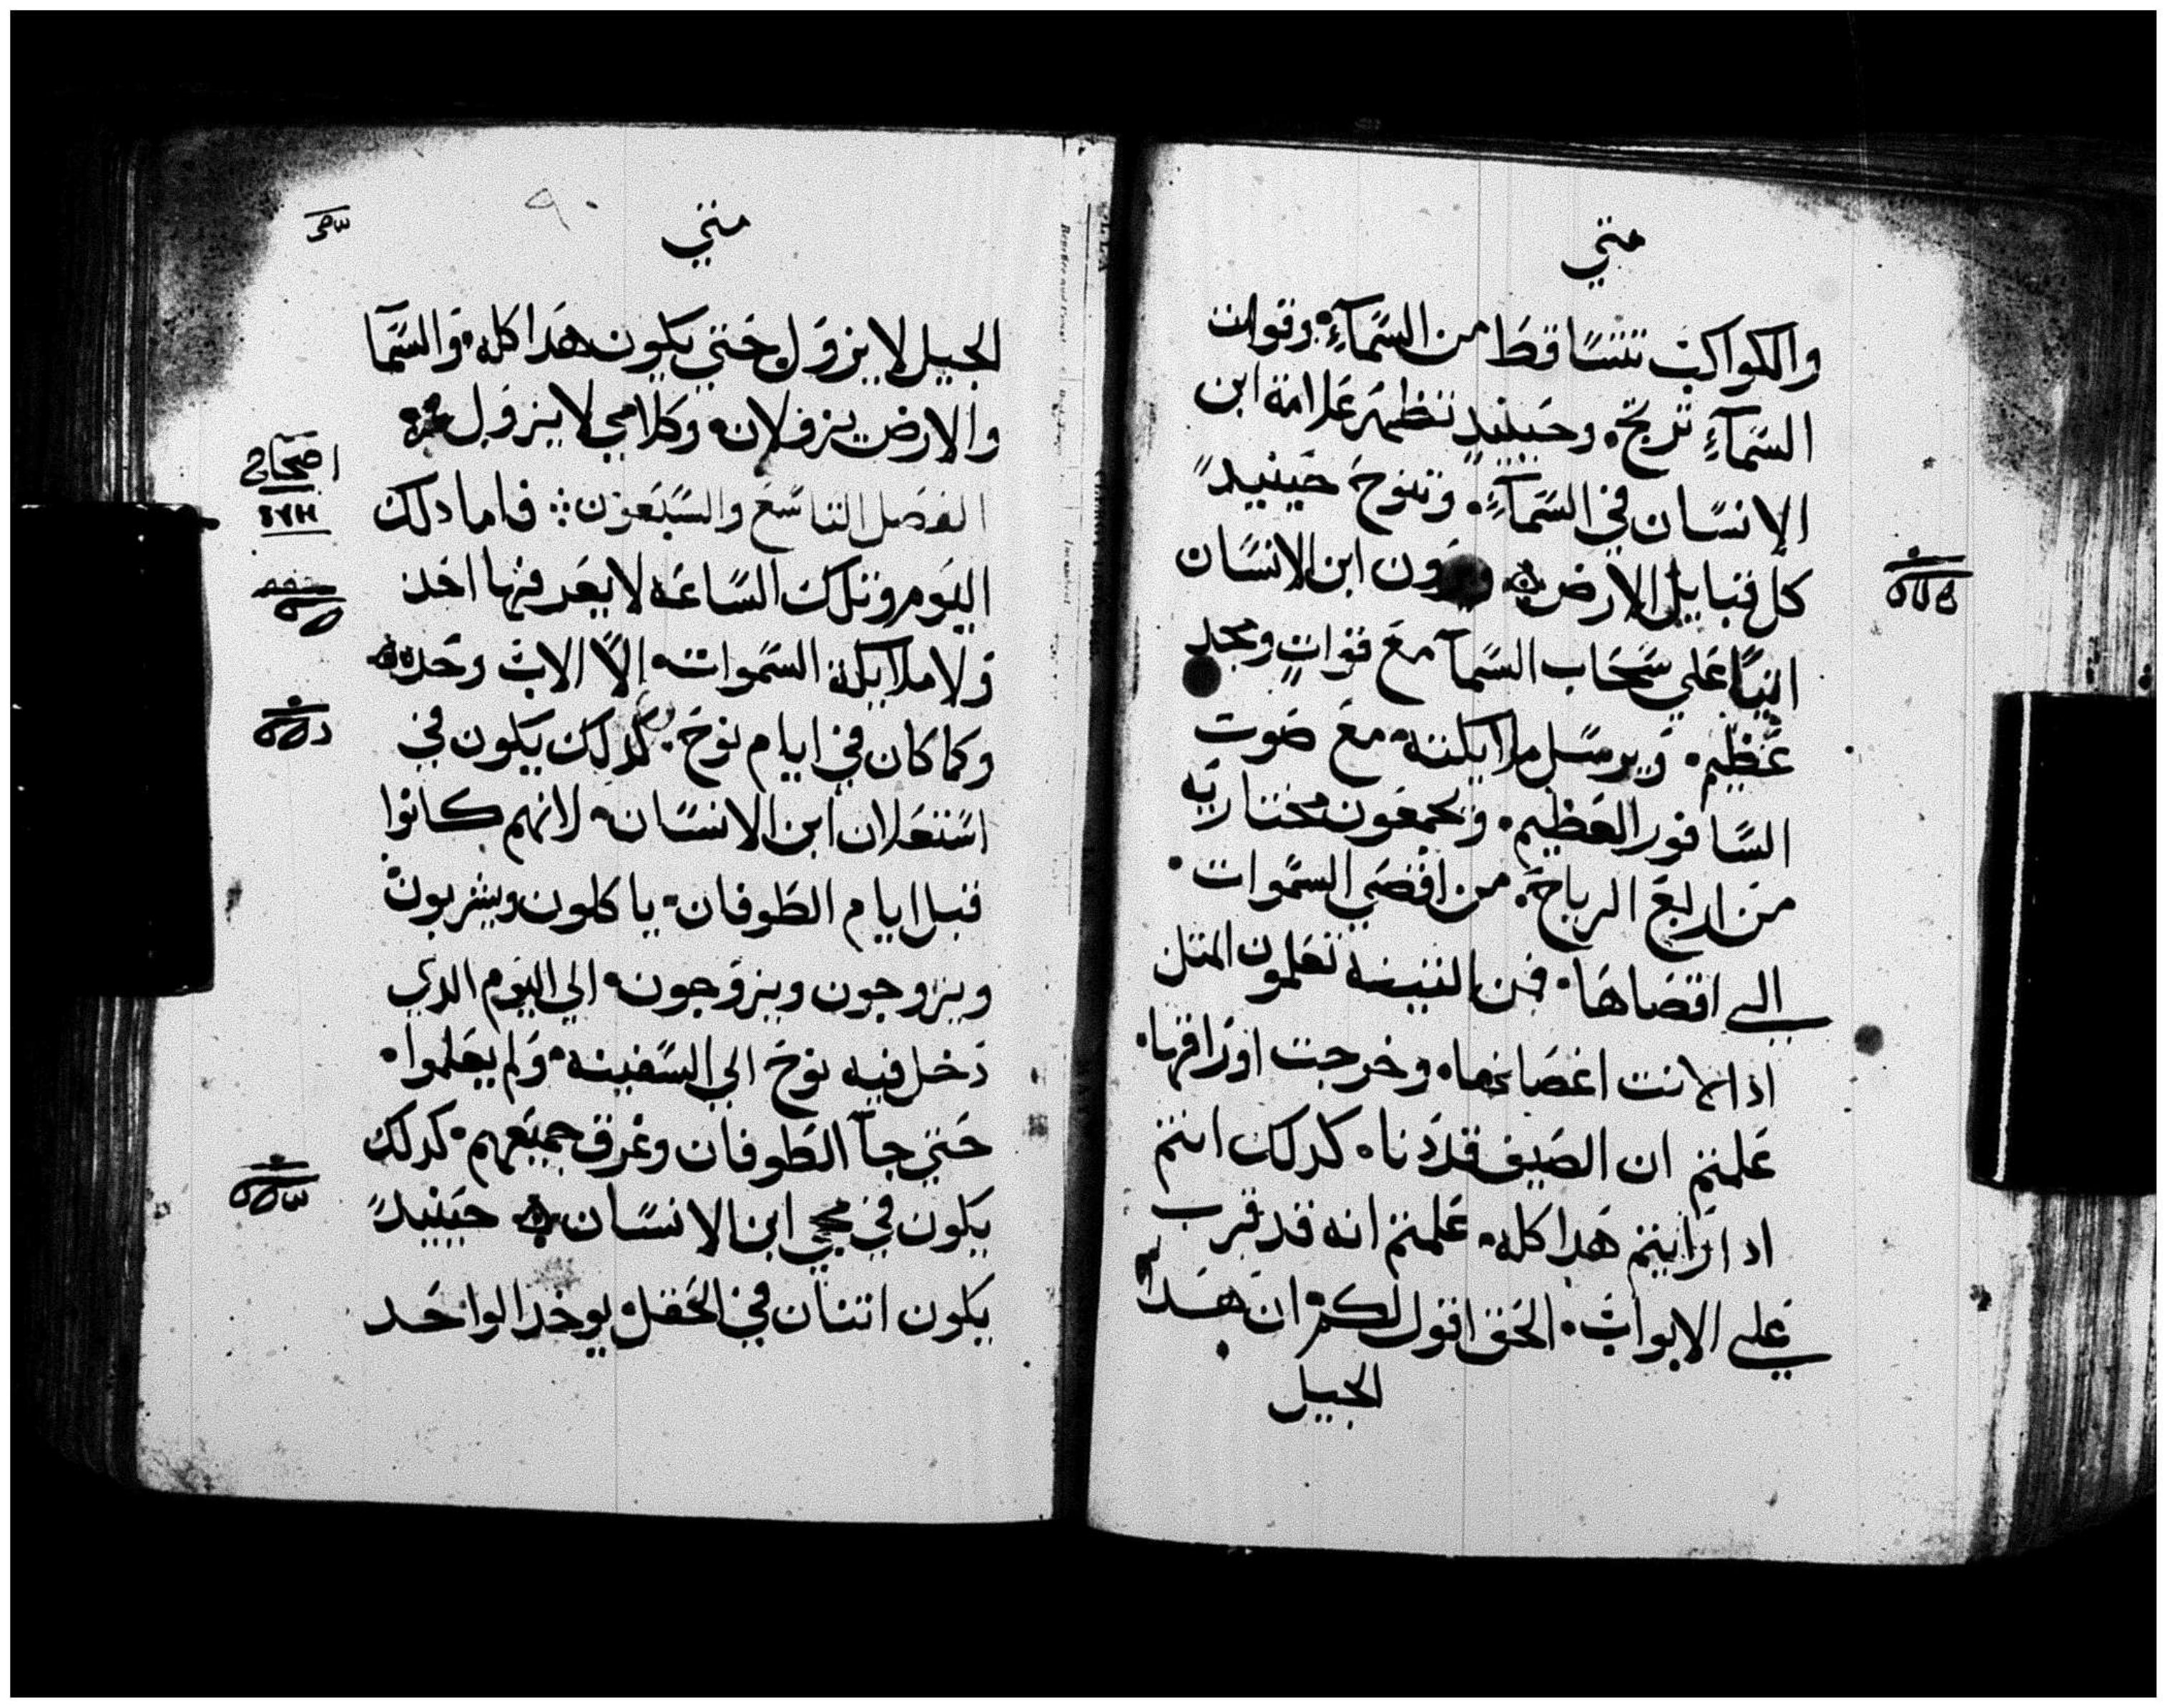 متي
والكواكب تتساقط من السمآءِ، وقوات
السمآءِ ترتج، وحينيدٍ تظهر علامة ابن
الإنسان في السمآءِ، وتنوح حينيدٍ
كل قبايل الارض ويرون ابن الانسان
اتيًا علي سحاب السمآ مع قواتٍ ومجد
عظيم، ويرسل ملايكته، مع صوت
السافور العظيم، ويجمعون مختاريه
من اربع الرياح، من اقصي السموات
الي اقصاها، فمن التينه تعلمون المتل
اذا لانت اغصانها، وخرجت اوراقها،
علمتم ان الصيف قد دنا، كدلك انتم
ادا رايتم هدا كله، علمتم انه قد قرب
علي الابواب، الحق اقول لكم، ان هدا
الجيل
متي
٩٠
الجيل لا يزول حتي يكون هدا كله، والسمآ
والارض يزولان، وكلامي لا يزول
الفصل التاسع والسبعون فاما دلك
اصحاح
اليوم وتلك الساعه لا يعرفها احد
ولا ملايكة السموات، إلّا الاب وحده
وكما كان في ايام نوح، كدلك يكون في
استعلان ابن الانسان، لانهم كانوا
قبل ايام الطوفان، ياكلون ويشربون
ويزوجون ويتزوجون، الي اليوم الدي
دخل فيه نوح الي السفينه، ولم يعلموا،
حتي جآ الطوفان وغرق جميعهم، كدلك
يكون في مجي ابن الانسان حينيدٍ
يكون اتنان في الحقل يوخد الواحد